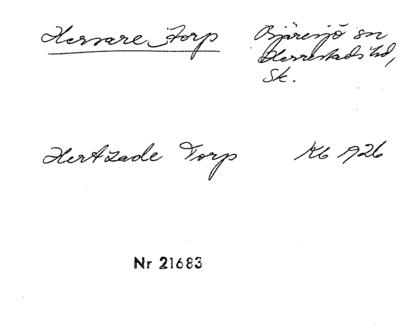 Hersare Torp Bjäresjö sn
Herrestads hd,
Sk.
Hertzade Torp Kb 1926
Nr 21683